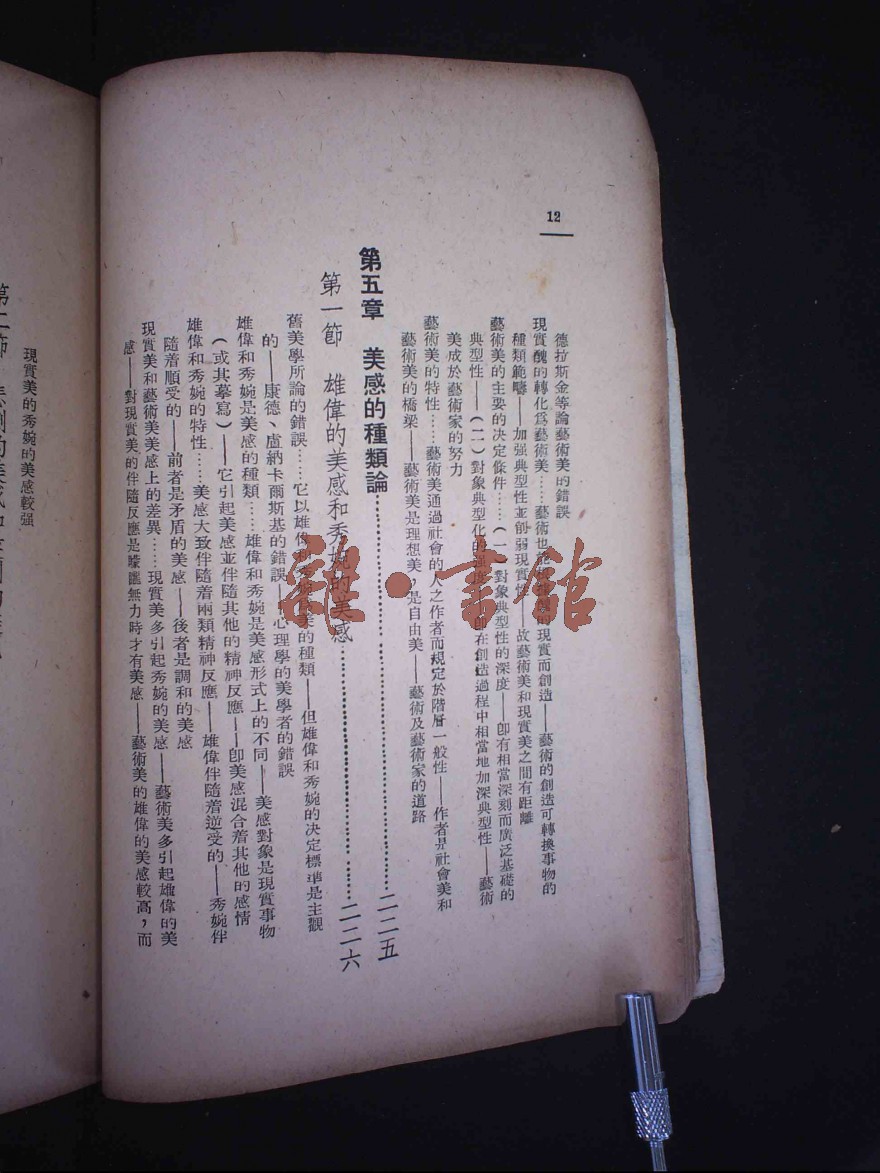 12
德拉斯金等論藝術美的錯誤
現實醜的轉化爲藝術美……藝術也能 現實而創造——藝術的創造可轉換事物的
種類範疇——加强典型性並削弱現實性——故藝術美和現實美之間有距離
藝術美的主要的決定條件……(一)對象典型性的深度——卽有相當深刻而廣泛基礎的
典型性——(二)對象典型化的强度——卽在創造過程中相當地加深典型性——藝術
美成於藝術家的努力
藝術美的特性……藝術美通過社會的人之作者而規定於階層一般性——作者是社會美和
藝術美的橋梁——藝術美是理想美，是自由美——藝術及藝術家的道路
第五章 美感的種類論……二二五
第一節 雄偉的美感和秀婉的美感……二二六
舊美學所論的錯誤……它以雄偉和秀婉爲美的種類——但雄偉和秀婉的決定標準是主觀
的——康德、盧納卡爾斯基的錯誤——心理學的美學者的錯誤
雄偉和秀婉是美感的種類……雄偉和秀婉是美感形式上的不同——美感對象是現實事物
(或其摹寫)——它引起美感並伴隨其他的精神反應——卽美感混合着其他的感情
雄偉和秀婉的特性……美感大致伴隨着兩類精神反應——雄偉伴隨着逆受的——秀婉伴
隨着順受的——前者是矛盾的美感——後者是調和的美感
現實美和藝術美美感上的差異……現實美多引起秀婉的美感——藝術美多引起雄偉的美
感——對現實美的伴隨反應是朦朧無力時才有美感——藝術美的雄偉的美感較高，而
現實美的秀婉的美感較强
第二節
雜·書館